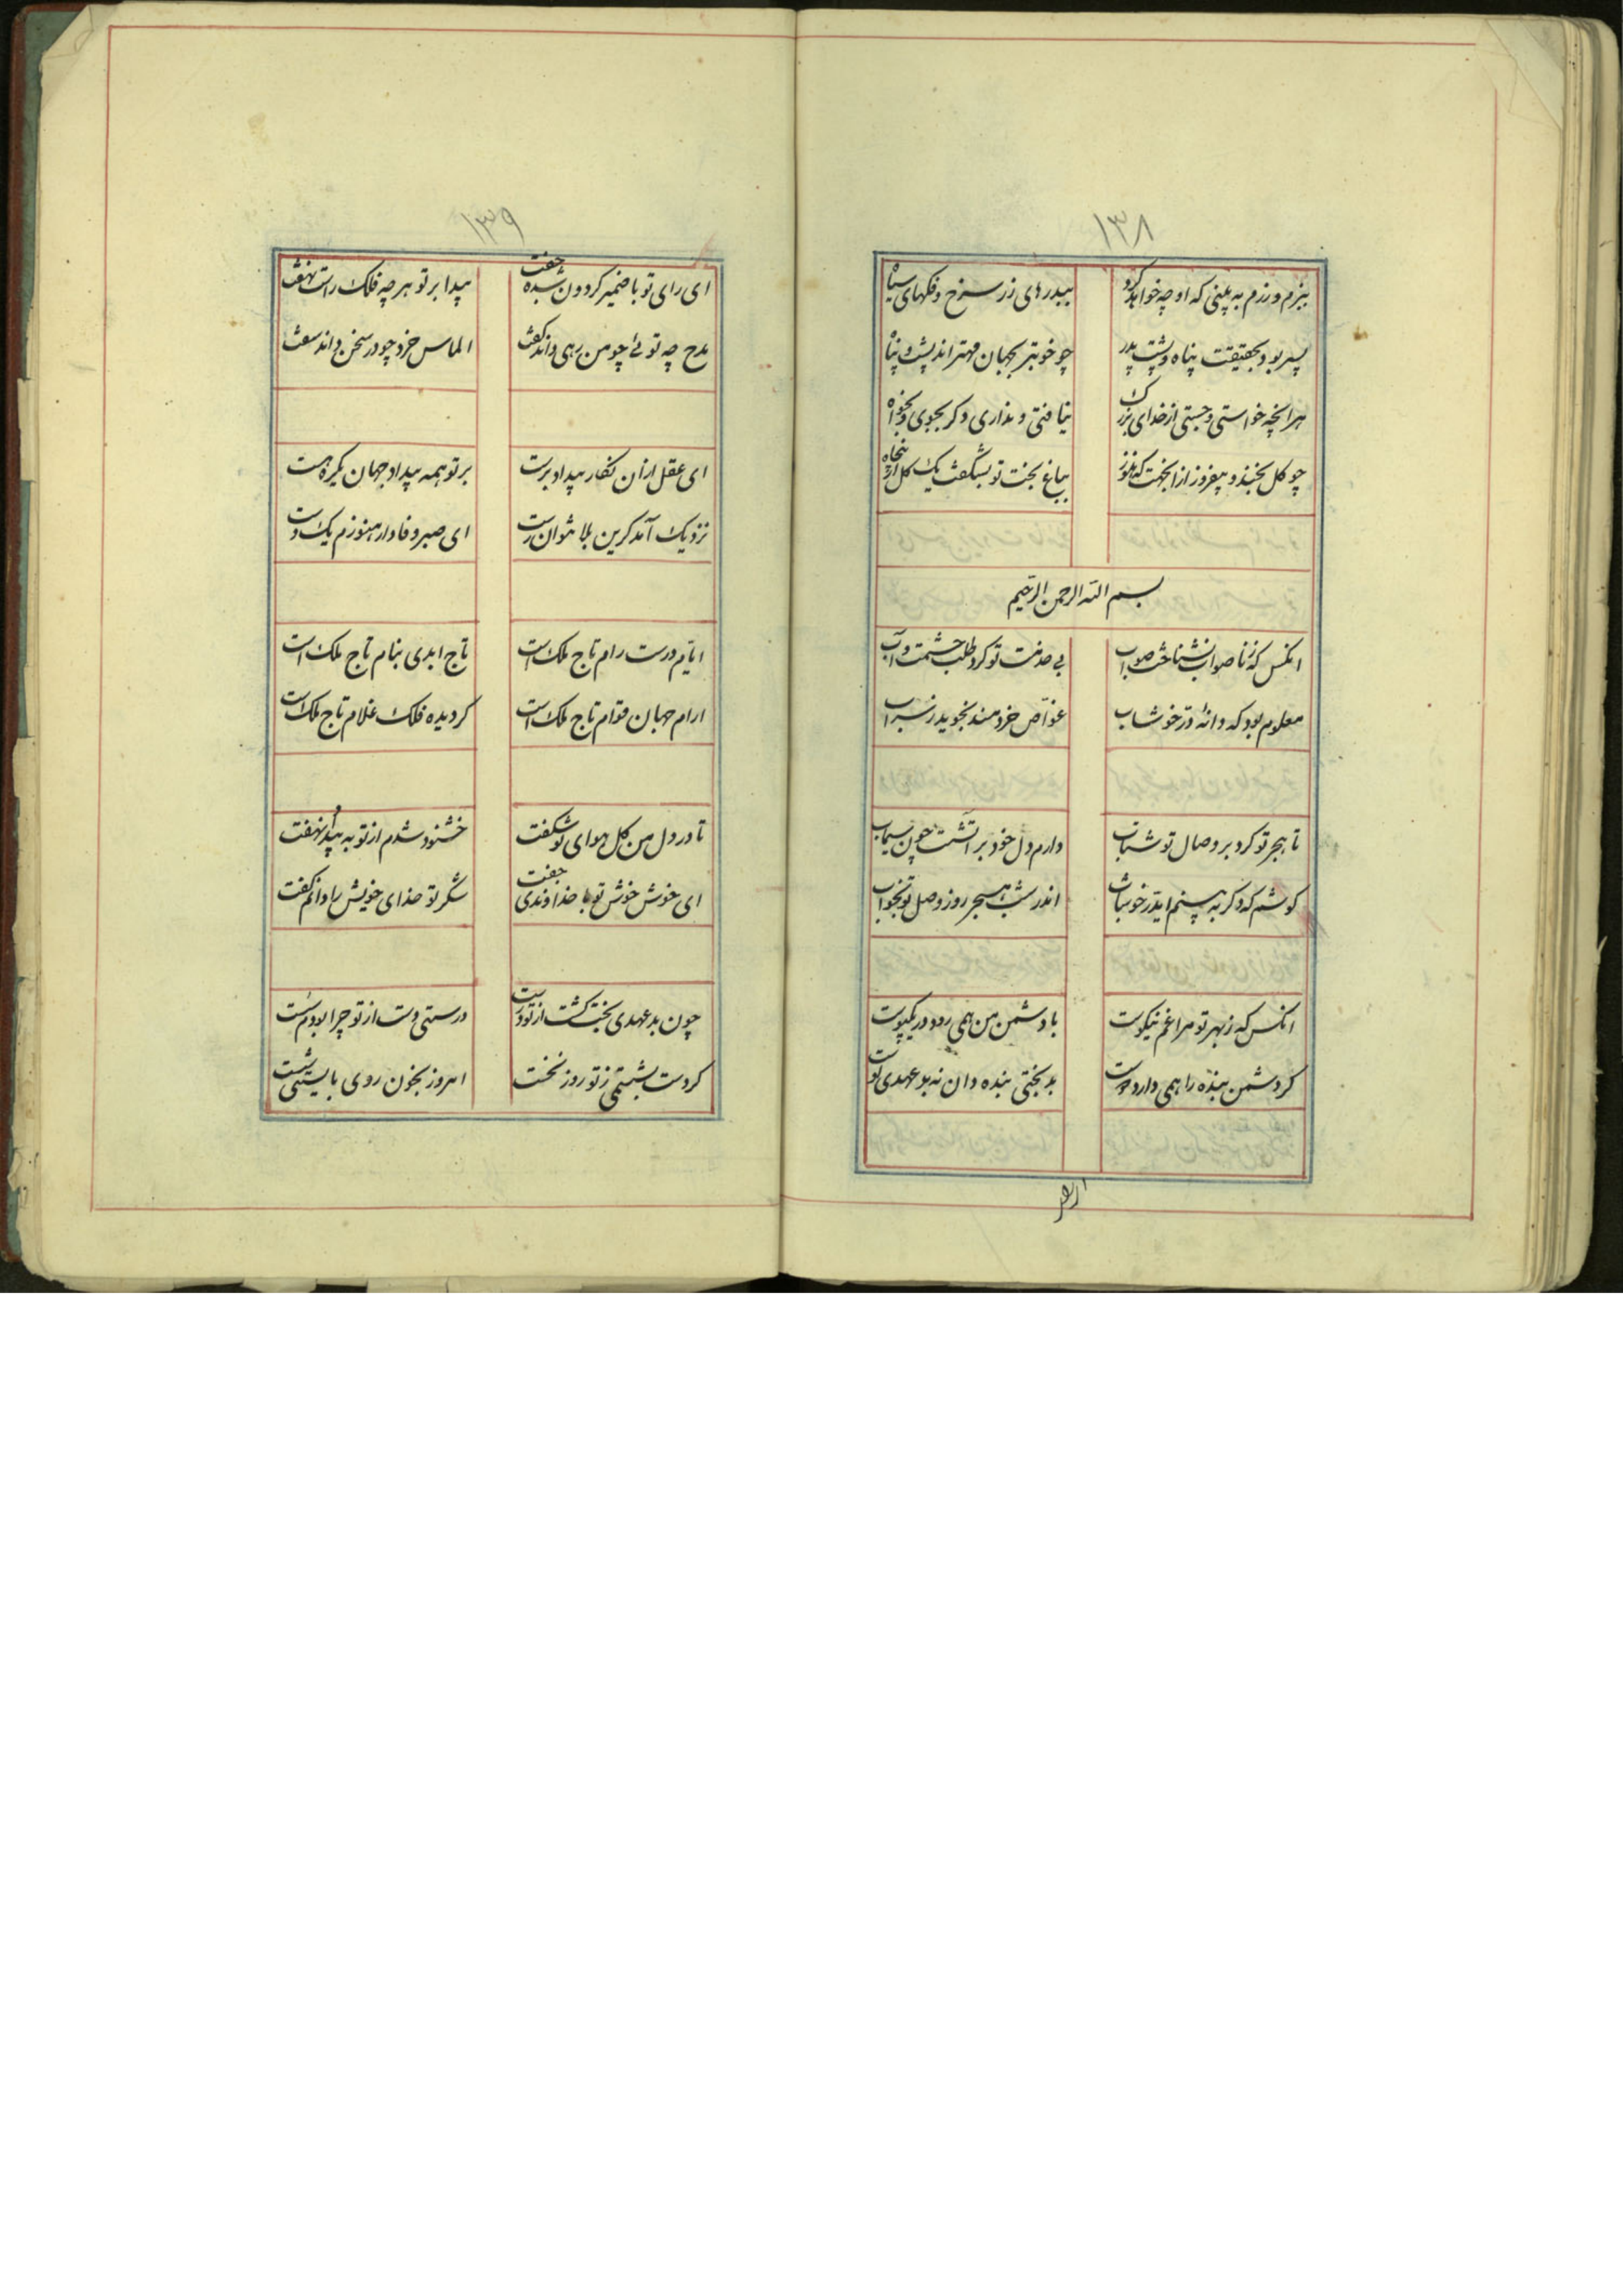 ۱۳۸
ببزم و رزم به بینی که او چه خواهد کرد ببدرهای زر سرخ و فکهای سیاه
پسر بود بحقیقت پناه و پشت پدر چو خوبتر بجهان مهتر اندپشت و پناه
هرانچه خواستی و جستی از خدای بزرک نیافتی و نداری و کر بجوی و بخواه
چو کل بخند و بیفروز از انجهت که هنوز بباغ بخت تو بشکفت یک کل از پنجاه
بسم الله الرحمن الرحیم
انکس که ز ناصواب نشناخت صواب بی خدمت تو کرد طلب حشمت و آب
معلوم بود که دانه در خوشاب غواص خردمند نجوید ز سراب
تا هجر تو کرد بر وصال تو شتاب دارم دل خود بر آتشت چون سیماب
کوشم که دکر به بینم ایدر خوشاب اندر شب هجر روز وصل تو بخواب
انکس که ز بهر تو مرا غم نیکوست با دشمن من همی رود در یکپوست
کر دشمن بنده را همی دارد دوست بدبختی بنده دان نه بد عهدی دوست
ارزقی
۱۳۹
ای رای تو با ضمیر کردون شده جفت پیدا بر تو هر چه فلک راست نهفت
مدح چه توئی چو من رهی داند کفت الماس خرد چو در سخن داند سفت
ای عقل ازان نکار بیداد پرست بر تو همه بیداد جهان یکره هست
نزدیک آمد کزین بلا نتوان رست ای صبر وفادار هنوزم یک دست
ایام درست رام تاج ملک است تاج ابدی بنام تاج ملک است
ارام جهان قوام تاج ملک است کردیده فلک غلام تاج ملک است
تا در دل من کل هوای تو شکفت خشنود شدم از تو به پیدا و نهفت
ای خوش خوش تو با خداوندی جفت شکر تو خدای خویش را دانم کفت
چون بد عهدی بخت کشت از تو درست در سستی دست از تو چرا بودم سست
کر دست بشستمی ز تو روز نخست امروز بخون روی بایستی شست